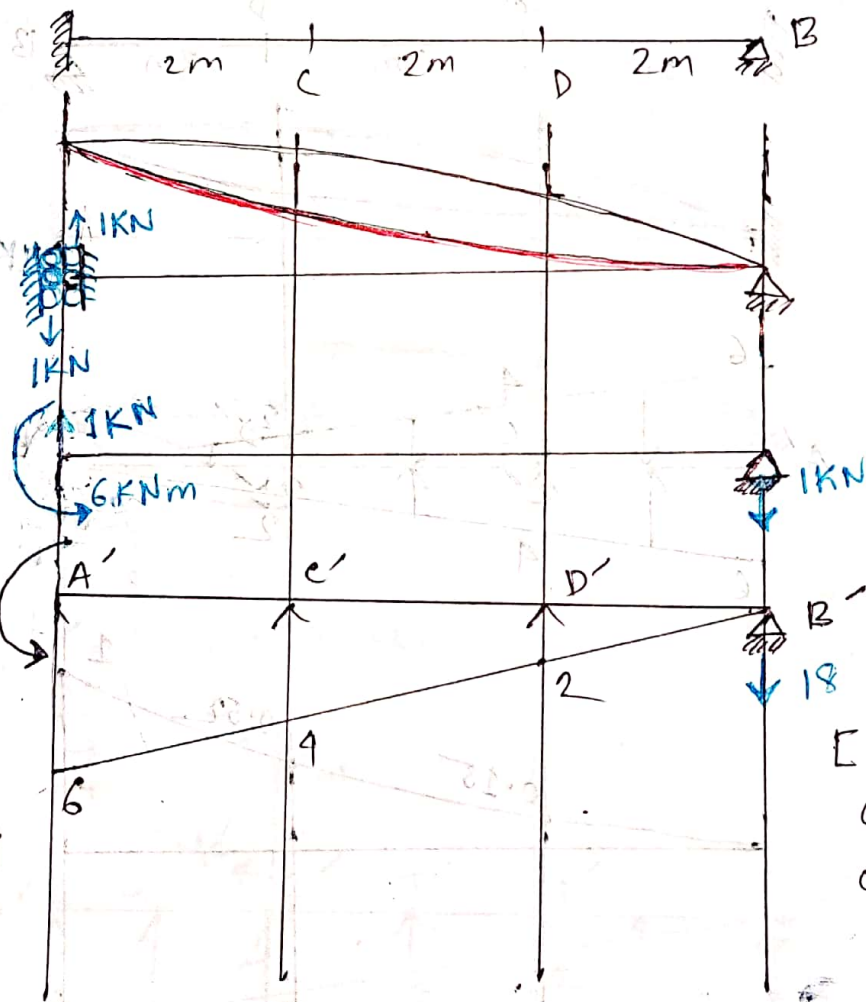 B
2m C 2m D 2m
1KN
1KN
1KN
6KNm
1KN
A' C' D' B'
18
2
4
6